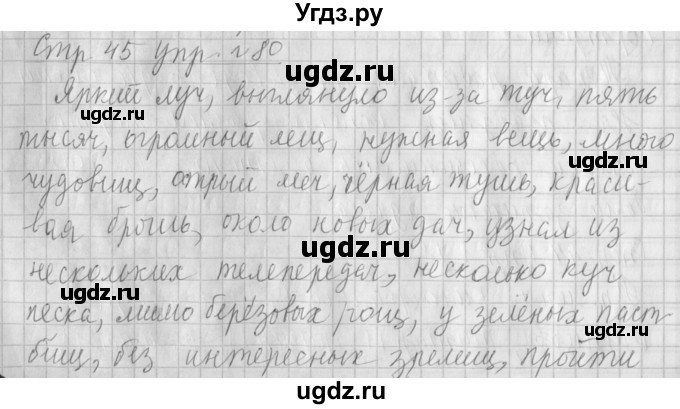 Угдз.ру
Стр 45 упр. №80
ugdz.ru
Яркий луч, выглянуло из-за туч, пять
ugdz.ru
тысяч, огромный лещ, нужная вещь, много
ugdz.ru
чудовищ, отрый меч, чёрная тушь, краси-
вая брошь, около новых дач, узнал из
ugdz.ru
нескольких телепередач, несколько куч
ugdz.ru
песка, мимо берёзовых рощ, у зелёных паст-
ugdz.ru
бищ, без интересных зрелищ, пройти
ugdz.ru